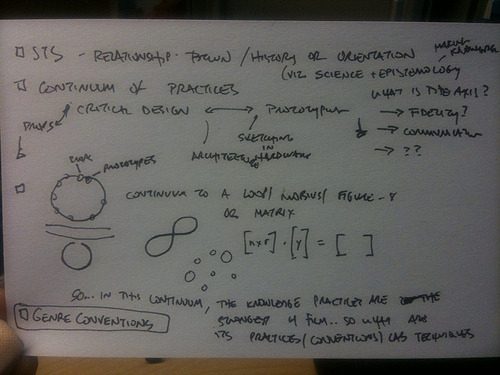 STS - RELATIONSHIP - / HISTORY OR ORIENTATION MAKING KNOWLEDGE
(VIZ SCIENCE + EPISTEMOLOGY
CONTINUUM OF PRACTICES
WHAT IS THE AXIS?
PROPS CRITICAL DESIGN PROTOTYPING → FIDELITY?
SKETCHING IN HARDWARE → COMMUNICATION
ARCHITECTURE → ??
PROTOTYPES
CONTINUUM TO A LOOP / MOBIUS / FIGURE-8
OR MATRIX
[n x r] · [y] = [ ]
SO... IN THIS CONTINUUM, THE KNOWLEDGE PRACTICES ARE THE
GENRE CONVENTIONS
STRANGEST FILM.. SO WHAT ARE
ITS PRACTICES / CONVENTIONS / TECHNIQUES